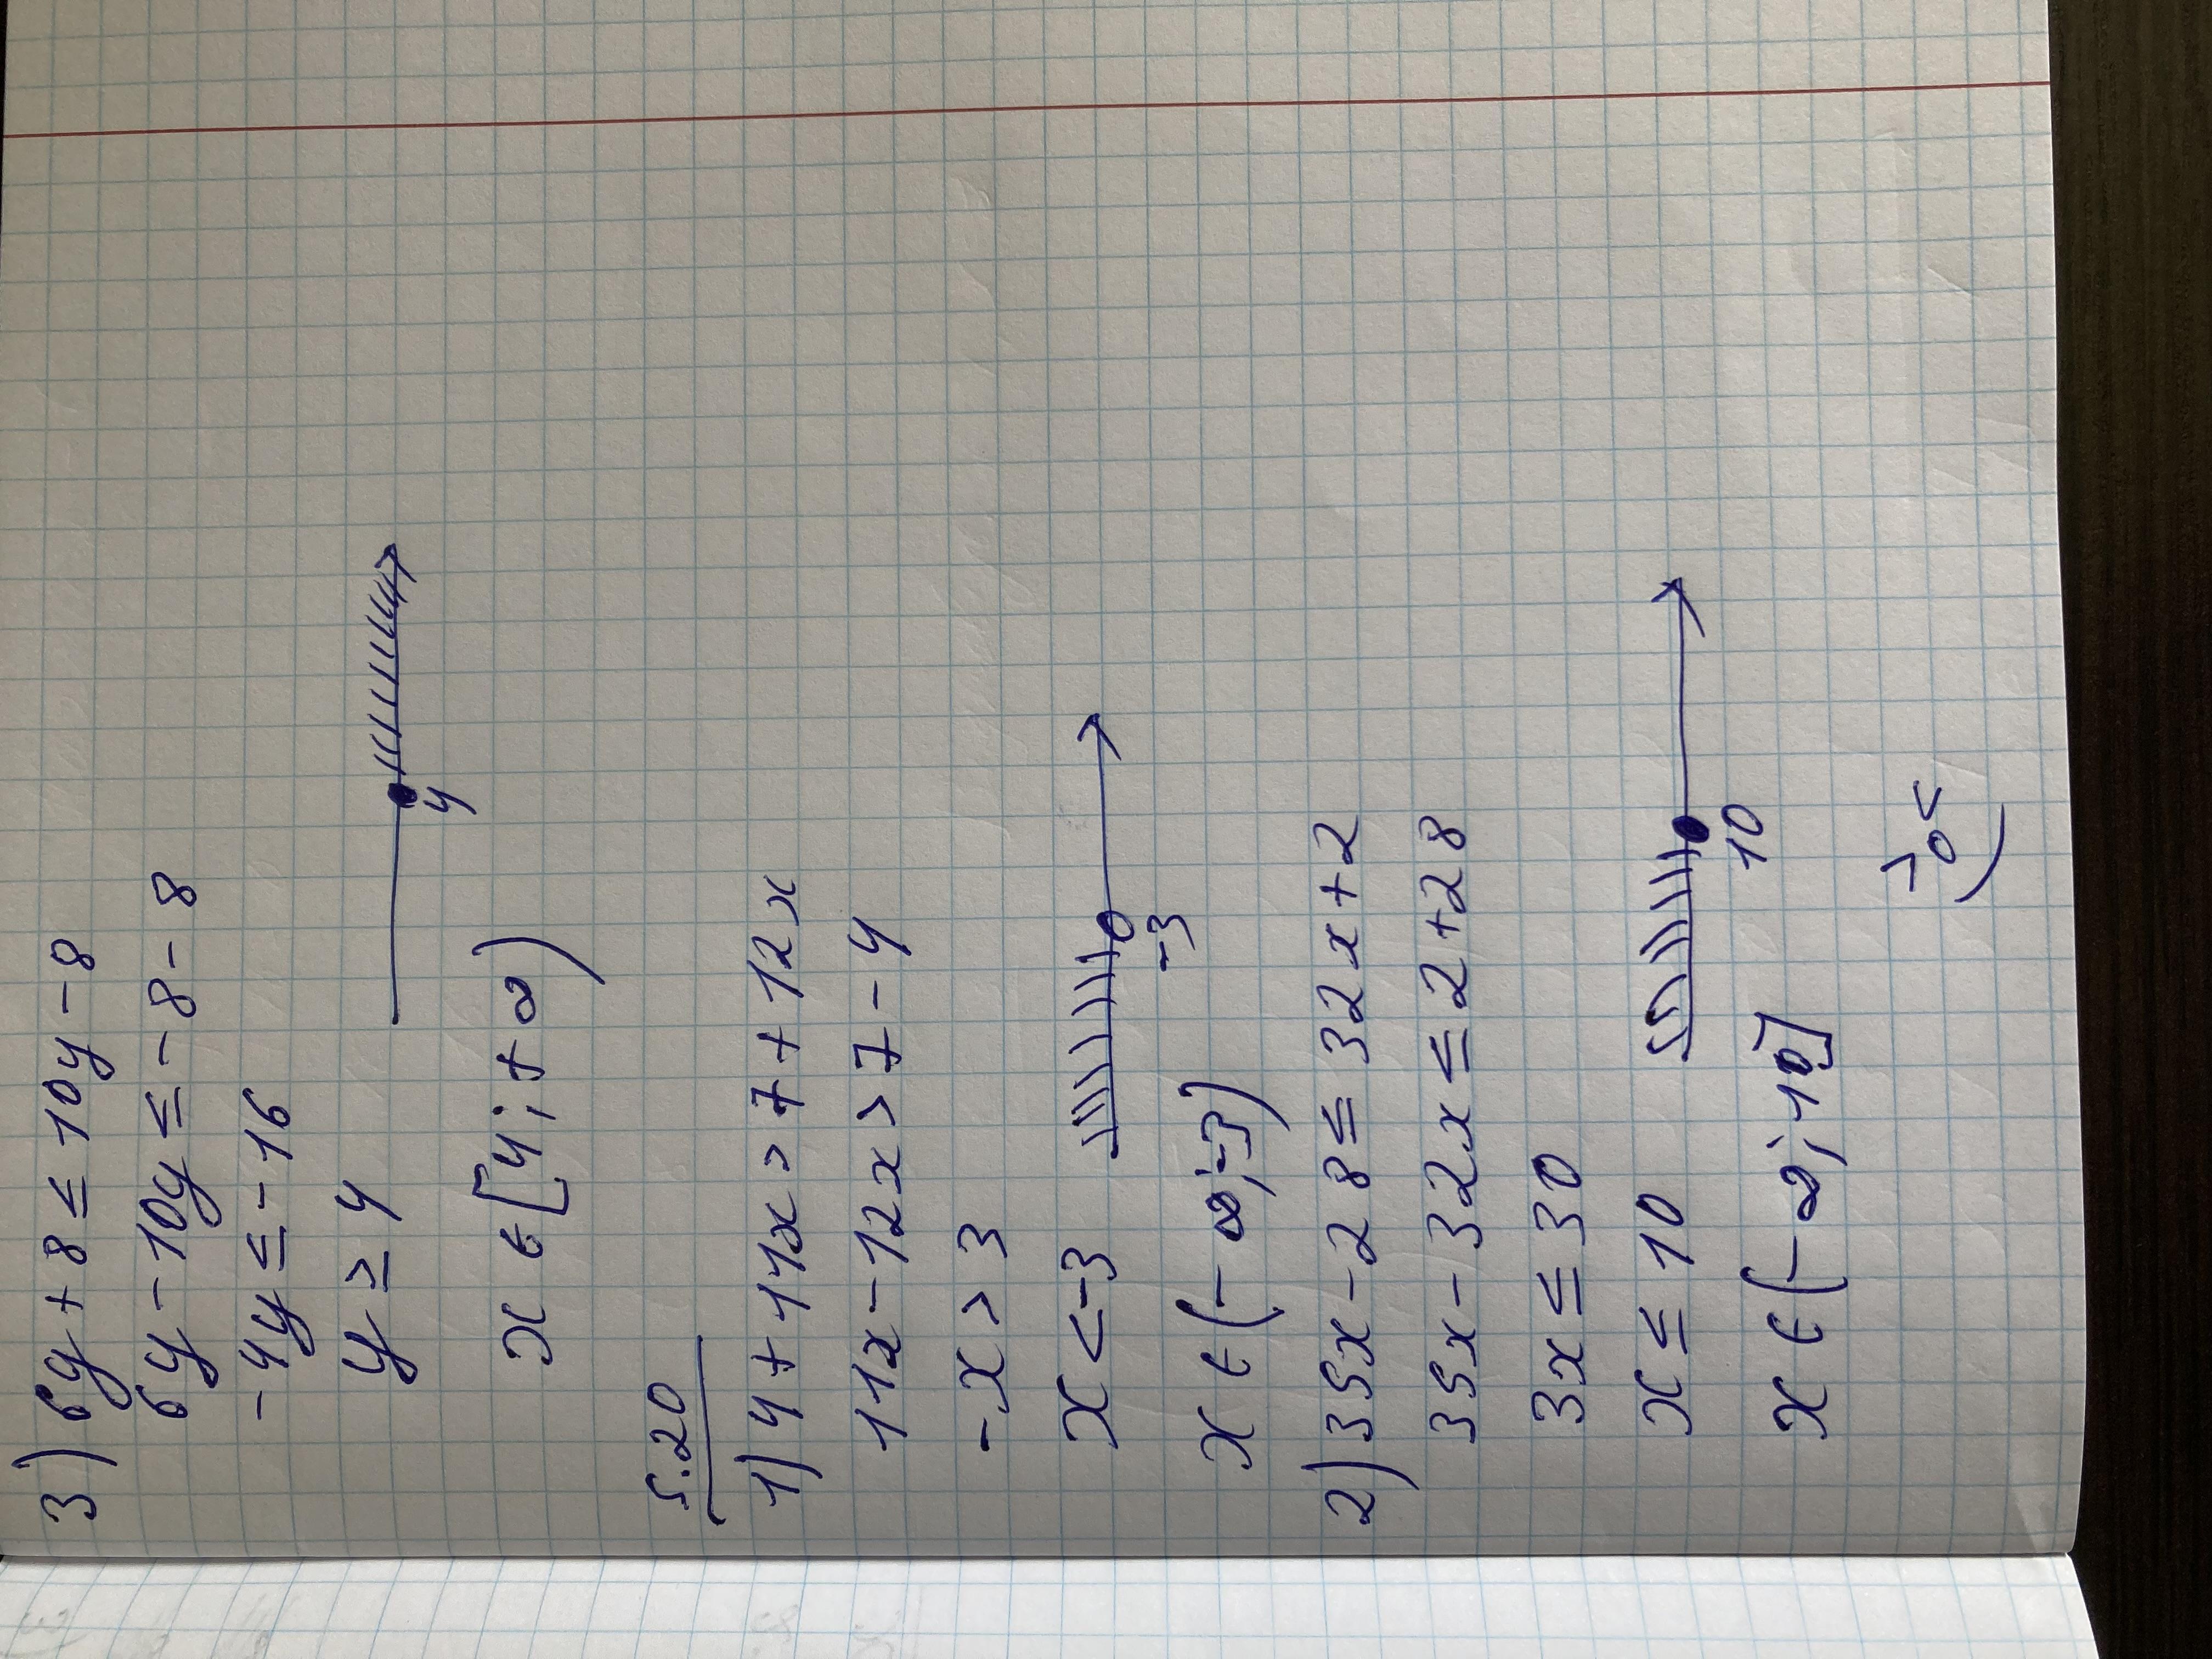 3) 6y + 8 ≤ 10y - 8
6y - 10y ≤ - 8 - 8
-4y ≤ -16
y ≥ 4
4
x ∈ [4; + ∞)
5.20
1) 4 + 11x > 7 + 12x
11x - 12x > 7 - 4
-x > 3
x < -3
-3
x ∈ (- ∞; -3)
2) 35x - 28 ≤ 32x + 2
35x - 32x ≤ 2 + 28
3x ≤ 30
x ≤ 10
10
x ∈ (- ∞; 10]